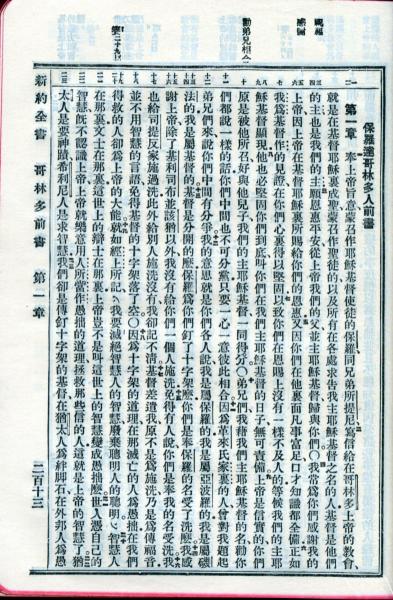 保羅達哥林多人前書
第一章 奉上帝旨意蒙召作耶穌基督使徒的保羅同兄弟所提尼寫信給在哥林多上帝的教會
就是在基督耶穌裏成聖蒙召作聖徒的以及所有在各處求告我主耶穌基督之名的人基督是他們
的主也是我們的主願恩惠平安從上帝我們的父並主耶穌基督歸與你們〇我常爲你們感謝我的
上帝因上帝在基督耶穌裏所賜給你們的恩惠又因你們在他裏面凡事富足口才知識都全備正如
我爲基督作的見證在你們心裏得以堅固以致你們在恩賜上沒有一樣不及人的等候我們的主耶
穌基督顯現他也必堅固你們到底叫你們在我們主耶穌基督的日子無可責備上帝是信實的你們
原是被他所召好與他兒子我們的主耶穌基督一同得分〇弟兄們我藉我們主耶穌基督的名勸你
們都說一樣的話你們中間也不可分黨只要一心一意彼此相合因爲革來氏家裏的人曾對我題起
弟兄們來說你們中間有分爭我的意思就是你們各人說我是屬保羅的我是屬亞波羅的我是屬磯
法的我是屬基督的基督是分開的麽保羅爲你們釘了十字架麽你們是奉保羅的名受了洗麽我感
謝上帝除了基利司布並該猶以外我沒有給你們一個人施洗免得有人說你們是奉我的名受洗我
也給司提反家施過洗此外給別人施洗沒有我卻記不清基督差遣我原不是爲施洗乃是爲傳福音
並不用智慧的言語免得基督的十字架落了空〇因爲十字架的道理在那滅亡的人爲愚拙在我們
得救的人卻爲上帝的大能就如經上所記我要滅絕智慧人的智慧廢棄聰明人的聰明智慧人
在那裏文士在那裏這世上的辯士在那裏上帝豈不是叫這世上的智慧變成愚拙麽世人憑自己的
智慧既不認識上帝上帝就樂意用人所當作愚拙的道理拯救那些信的人這就是上帝的智慧了猶
太人是要神蹟希利尼人是求智慧我們卻是傳釘十字架的基督在猶太人爲絆腳石在外邦人爲愚
新約全書 哥林多前書 第一章 二百十三
勸弟兄相合